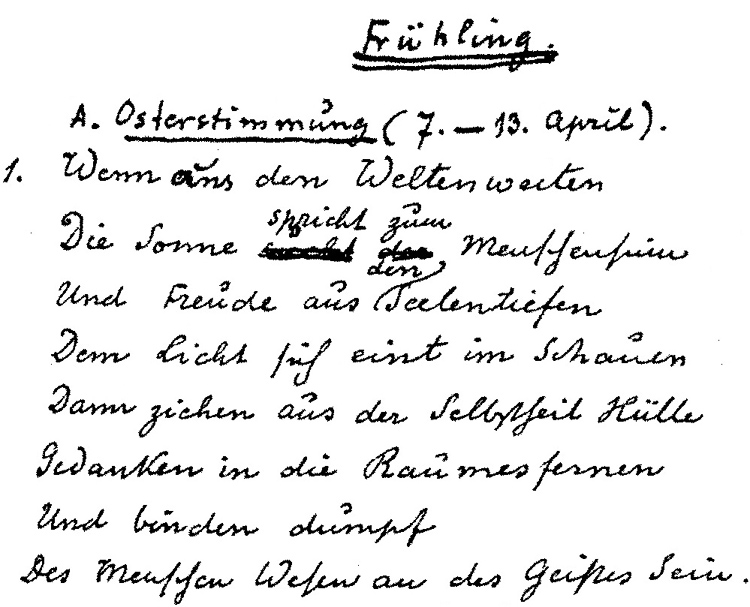 Frühling.
A. Osterstimmung (7. — 13. April).
1. Wenn aus den Weltenweiten
spricht zum
Die Sonne Menschensinn
den
Und Freude aus Seelentiefen
Dem Licht sich eint im Schauen
Dann ziehen aus der Selbstheit Hülle
Gedanken in die Raumesfernen
Und binden dumpf
Des Menschen Wesen an des Geistes Sein.